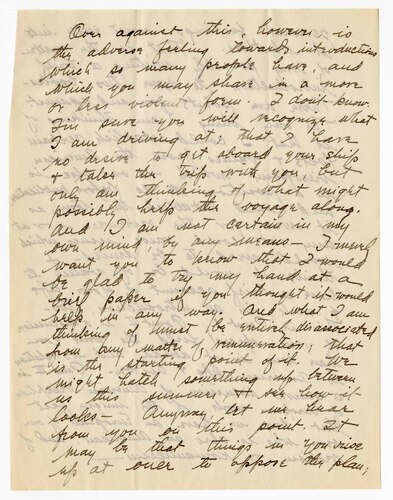 Over against this, however is
the adverse feeling towards introductions
which so many people have, and
which you may share in a more
or less violent form. I don't know.
I'm sure you will recognize what
I am driving at; that I have
no desire to get aboard your ship
& take the trip with you, but
only am thinking of what might
possible help the voyage along.
And I am not certain in my
own mind by any means — I merely
want you to know that I would
be glad to try my hand at a
brief paper if you thought it would
help in any way. And what I am
thinking of must be entirely disassociated
from any matter of remuneration; that
is the starting point of it. We
might hatch something up between
us this summer & see how it
looks — Anyway, let me hear
from you on this point. It
may be that things in you rise
up at once to oppose this plan;